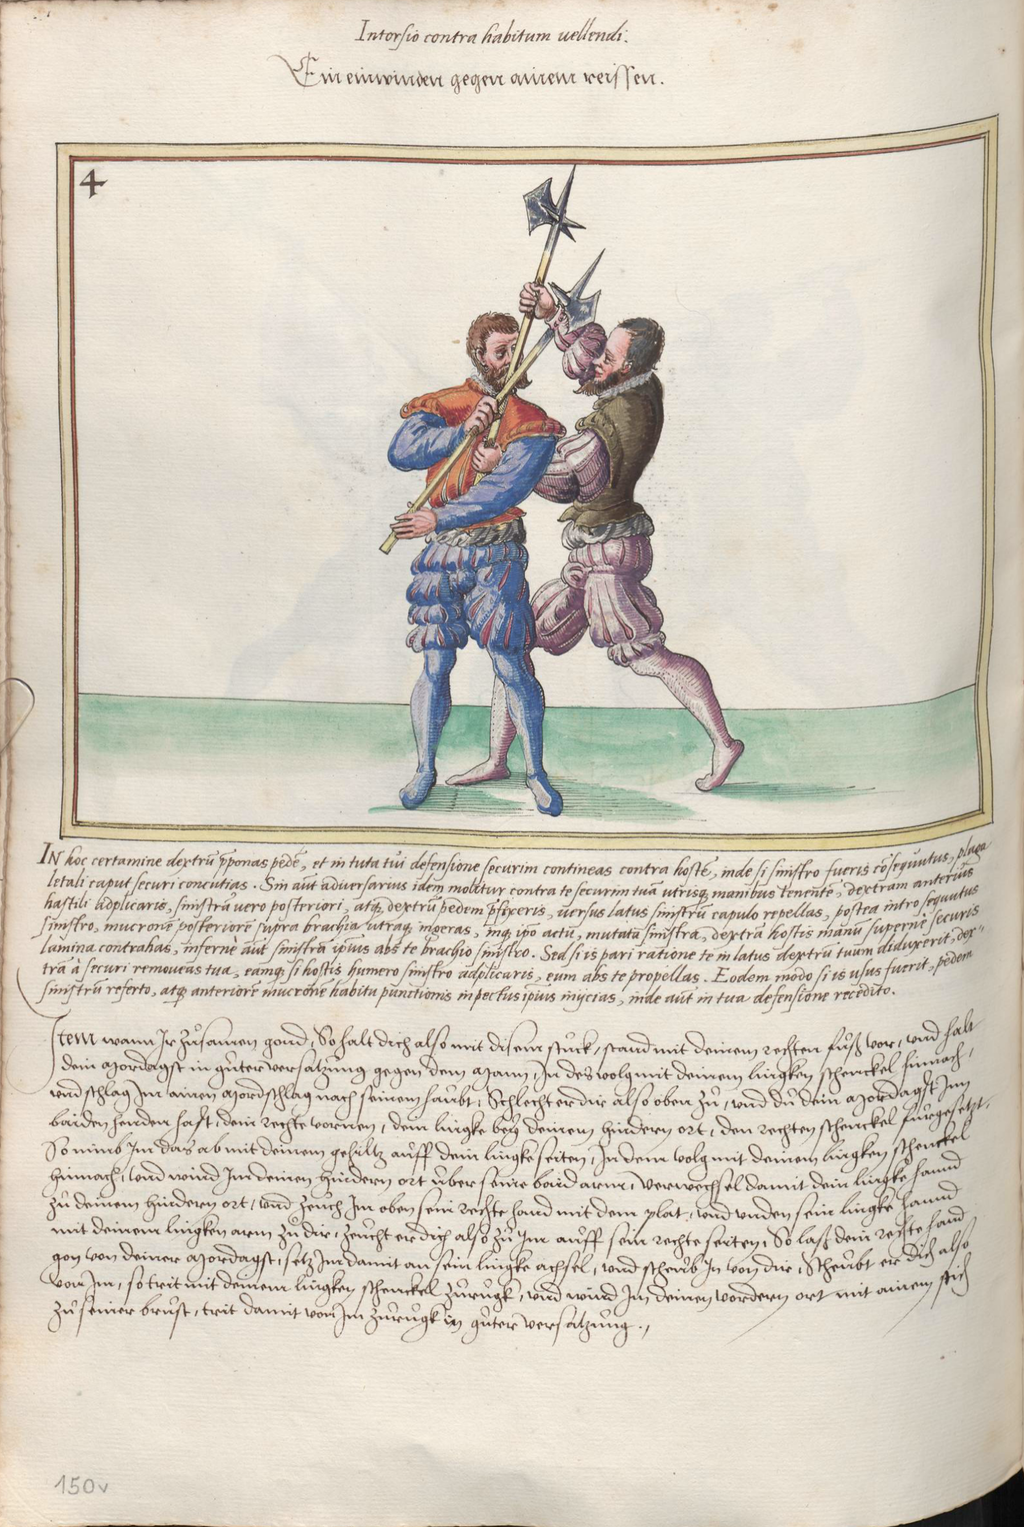 Intorsio contra habitum vellendi.
Ein einwinden gegen ainem reissen.
4
IN hoc certamine dextrū p̄ponas pedē, et in tuta tui defensione securim contineas contra hostē, inde si sinistro fueris cōsequutus, plaga
letali caput securi concutias. Sin aūt adversarius idem molitur contra te securim tuā utrisq manibus tenentē, dextram anterius
hastili adplicaris, sinistrā vero posteriori, atq dextrū pedem p̄fixeris, versus latus sinistrū capulo repellas, postea intro sequutus
sinistro, mucronē posteriorē supra brachia utraq ingeras, inq ipō actu, mutata sinistra, dextrā hostis manū supernè securis
lamina contrahas, infernè aūt sinistrā ipius abs te brachio sinistro. Sed si is pari ratione te in latus dextrū tuum diduxerit, dex-
trā à securi removeas tua, eamq si hostis humero sinistro adplicaris, eum abs te propellas. Eodem modo si is usus fuerit, pedem
sinistrū referto, atq anteriorē mucronē habitu punctionis in pectus ipius inijcias, inde aūt in tua defensione recedito.
Item wann Ir zusamen gond, So halt dich also mit disem stuck, stand mit deinem rechten fuß vor, vnd halt
dein Mordagst in guter versatzung gegen dem Mann, In des volg mit deinem lingken schenckel hinnach,
vnd schlag Im ainen Mordschlag nach seinem haubt, Schlecht er dir also oben zu, vnd du dein Mordagst Inn
baiden henden hast, dein rechte vornen, dein lingke bey deinem hindern ort, den rechten schenckel furgesetzt,
So nimb Im das ab mit deinem gehiltz auff dein lingke seiten, In dem volg mit deinem lingken schenckel
hinnach, vnd wind Im deinen hindern ort uber seine baid arm, verwechsel damit dein lingke hannd
zu deinem hindern ort, vnd zeuch Im oben sein rechte hand mit dem plat, vnd vnden sein lingke hannd
mit deinem lingken arm zu dir, zeucht er dich also zu Im auff sein rechte seiten, So laß dein rechte hand
gon von deiner Mordagst, setz Im damit an sein lingke achsel, vnd scheub In von dir, Scheubt er dich also
von Im, so trit mit deinem lingken schenckel zurugk, vnd wind Im deinen vordern ort mit ainem stich
zu seiner brust, trit damit von Im zurugk in guter versatzung.
150v